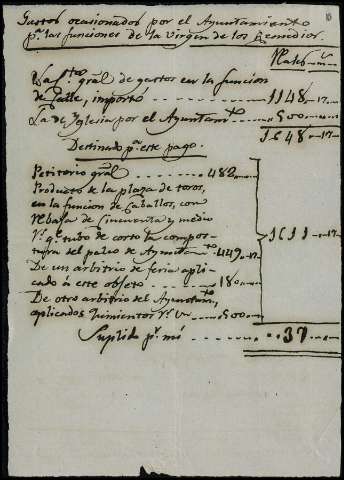 Gastos ocasionados por el Ayuntamiento
pa. las funciones de la Virgen de los Remedios.
Rales vn.
La pta. gral de gastos en la funcion
de Calle, importó 1148..17..
La de Yglesia por el Ayuntamto. 500
1648..17
Destinado pa. este pago.
Petitorio gral 482
Producto de la plaza de toros,
en la funcion de Caballos, con
rebaja de Cincuenta y medio
rs. qe. tubo de costo la compos-
tura del palco de Ayuntamto. 449..17
De un arbitrio de feria apli-
cado á este objeto 180
De otro arbitrio del Ayuntam.,
aplicados quinientos rs. vn 500
1611..17
Suplido pr. mi 37